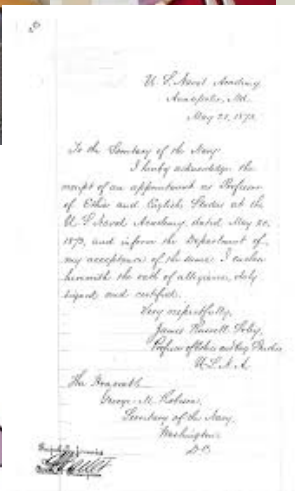 U. S. Naval Academy
Annapolis, Md.
May 21, 1873.
To the Secretary of the Navy
I hereby acknowledge the
receipt of an appointment as Professor
of Ethics and English Studies at the
U. S. Naval Academy, dated May 20,
1873, and inform the Department of
my acceptance of the same. I enclose
herewith the oath of allegiance, duly
signed and certified.
Very respectfully,
James Russell Soley,
Professor of Ethics and Eng. Studies
U.S.N.A.
The Honorable
George M. Robeson,
Secretary of the Navy,
Washington
D.C.